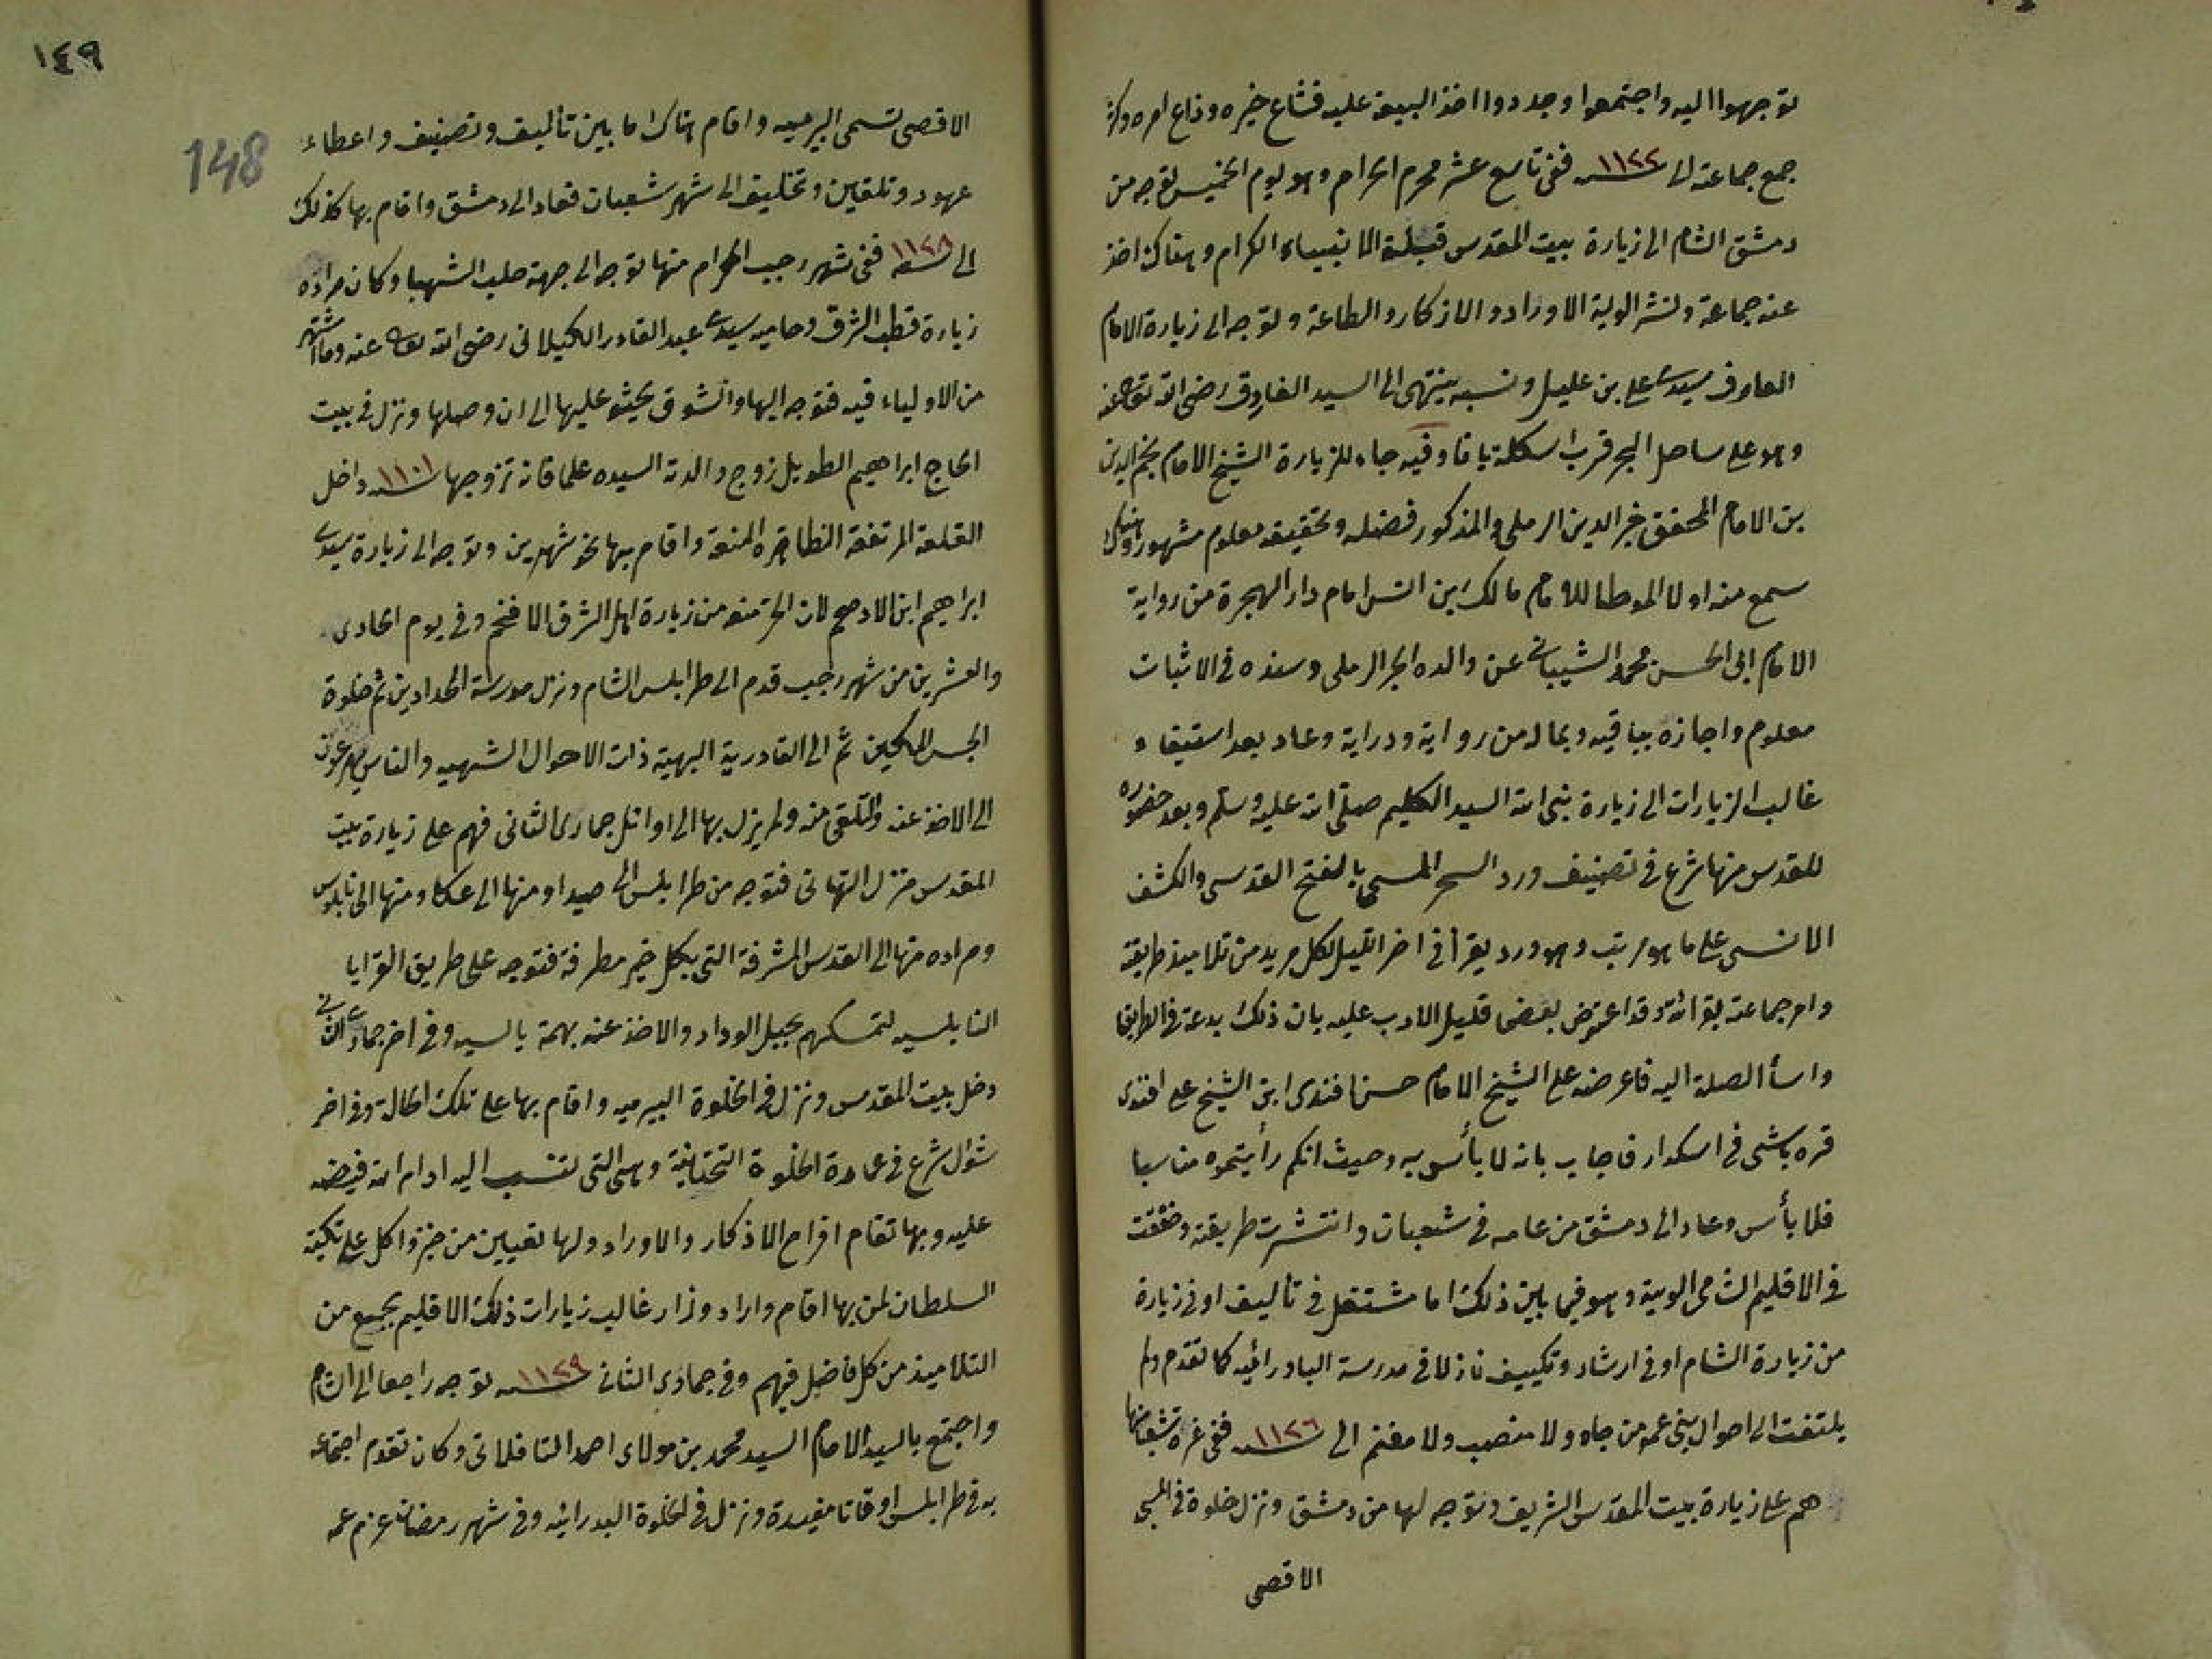 توجهوا اليه واجتمعوا وجددوا اخذ البيعة عليه فشاع خيره وذاع امره وكثر
جمع جماعته الى سنة ١١٢٢ ففى تاسع عشر محرم الحرام وهو يوم الخميس توجه من
دمشق الشام الى زيارة بيت المقدس قبلة الانبياء الكرام وهناك اخذ
عنه جماعة ونشر الوية الاوراد والاذكار والطاعة وتوجه الى زيارة الامام
العارف سيدى على بن عليل ونسبه ينتهى الى السيد الفاروق رضى الله تعالى عنه
وهو على ساحل البحر قرب اسكلة يافا وفيه جاء للزيارة الشيخ الامام نجم الدين
بن الامام المحقق خير الدين الرملى والمذكور فضله وتحقيقه معلوم مشهور وهناك
سمع منه اولا الموطا للامام مالك ابن انس امام دار الهجرة من رواية
الامام ابى الحسن محمد الشيبانى عن والده الخير الرملى وسنده فى الاثبات
معلوم واجازه بباقيه وبماله من رواية ودراية وعاد بعد استيفاء
غالب الزيارات الى زيارة نبى الله السيد الكليم صلى الله عليه وسلم وبعد حضوره
للقدس منها شرع فى تصنيف ورد السحر المسمى بالفتح القدسى والكشف
الانسى على ما هو مرتب وهو ورد يقرأ فى اخر الليل لكل مريد من تلاميذ طريقته
وامر جماعته بقرائته وقد اعترض بعض قليل الادب عليه بان ذلك بدعة فى الطريق
واسأ الصلة اليه فاعرضه على الشيخ الامام حسن افندى ابن الشيخ على افندى
قره باشى فى اسكدار فاجاب بانه لا بأس به وحيث انكم رأيتموه مناسبا
فلا بأس وعاد الى دمشق من عامه فى شعبان وانتشرت طريقته وخفقت
فى الاقليم الشامى الويته وهو فيما بين ذلك اما مشتغل فى تأليف او فى زيارة
من زيارة الشام او فى ارشاد وتكييف نازلا فى مدرسة الباد رائيه كما تقدم ولم
يلتفت الى احوال بنى عمه من جاه ولا منصب ولا مغنم الى سنة ١١٢٦ ففى غرة شعبانها
هم على زيارة بيت المقدس الشريف وتوجه لها من دمشق ونزل خلوة فى المسجد
الاقصى
١٤٩
148
الاقصى تسمى البيرميه واقام هناك ما بين تأليف وتصنيف واعطاء
عهود وتلقين وتخليف الى شهر شعبان فعاد الى دمشق واقام بها كذلك
الى سنة ١١٢٨ ففى شهر رجب الحرام منها توجه الى جهة حلب الشهبا وكان مراده
زيارة قطب الشرق وحاميه سيدى عبد القادر الكيلانى رضى الله تعالى عنه وما اشتهر
من الاولياء فيه فتوجه اليها والشوق يحثو عليها الى ان وصلها ونزل فى بيت
الحاج ابراهيم الطويل زوج والدته السيده علما فانه تزوجها سنة ١١٠١ داخل
القلعة المرتفعة الظاهرة المنعة واقام بها نحو شهرين وتوجه الى زيارة سيدى
ابراهيم ابن الادهم لان الحر منعه من زيارة اهل الشرق الافخم وفى يوم الحادى
والعشرين من شهر رجب قدم الى طرابلس الشام ونزل مدرسة الحدادين ثم خلوة
ثم الى القادرية البهية ذات الاحوال الشهيه والناس يهرعون
الى الاخذ عنه والتلقى منه ولم يزل بها الى اوائل جمادى الثانى فهم على زيارة بيت
المقدس منزل التهانى فتوجه من طرابلس الى صيدا ومنها الى عكا ومنها الى نابلوس
ومراده منها الى القدس المشرفة التى بكل خير مطرفة فتوجه على طريق القرايا
النابلسيه لتمسكهم بحبل الوداد والاخذ عنه بهمة يالسيه وفى اخر جمادى الثانى
دخل بيت المقدس ونزل فى الخلوة البيرميه واقام بها على تلك الحالة وفى اخر
شوال شرع فى عمارة الخلوة التحتانية وهى التى تنسب اليه ادام الله فيضه
عليه وبها تقام افراح الاذكار والاوراد ولها تعيين من خبز واكل على تكية
السلطان لمن بها اقام واراد وزار غالب زيارات ذلك الاقليم بجمع من
التلاميذ من كل فاضل فهيم وفى جمادى الثانى سنة ١١٢٩ توجه راجعا الى الشام
واجتمع بالسيد الامام السيد محمد بن مولاى احمد التافلاتى وكان تقدم اجتماعه
به فى طرابلس اوقاتا مفيدة ونزل فى الخلوة البدرائيه وفى شهر رمضان عزم عمه